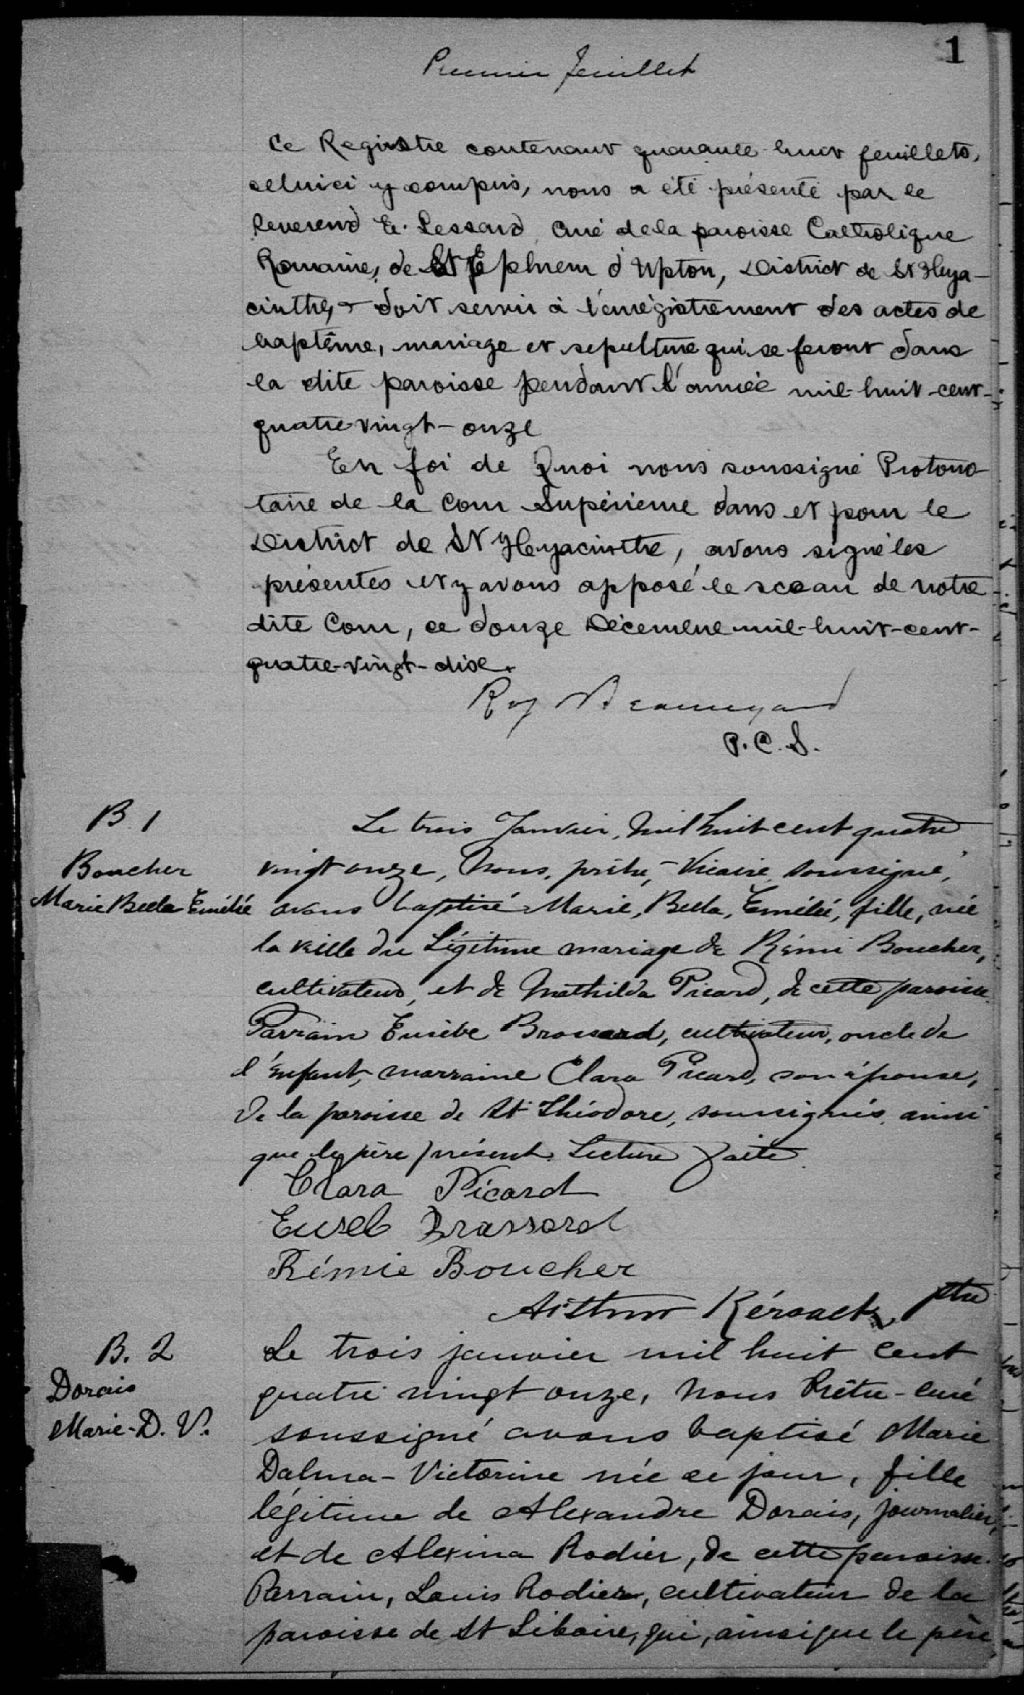 1
Premier feuillet
Ce Registre contenant quarante huit feuillets,
celui ci y compris, nous a été présenté par le
Reverend E. Lessard Curé de la paroisse Catholique
Romaine, de St Ephrem d'Upton, District de St Hya-
cinthe, & doit servir à l'enrégistrement des actes de
baptême, mariage et sepulture qui se feront dans
la dite paroisse pendant l'année mil-huit-cent-
quatre vingt-onze
En foi de Quoi nous soussigné Protono-
taire de la Cour Supérieure dans et pour le
District de St Hyacinthe, avons signé les
présentes et y avons apposé le sceau de notre
dite Cour, ce douze Décembre mil-huit-cent-
quatre-vingt-dix.
Roy Beauregard
P.C.S.
B 1
Boucher
Marie Beda Emélie
Le trois Janvier, Mil huit cent quatre
vingt onze, Nous, prêtre, Vicaire soussigné,
avons baptisé Marie, Beda, Emélie, fille, née
la veille du Légitime mariage de Rémi Boucher,
cultivateur, et de Mathilda Picard, de cette paroisse.
Parrain Eusèbe Brossard, cultivateur, oncle de
l'enfant, marraine Clara Picard, son épouse,
de la paroisse de St Théodore, soussignés ainsi
que le père présent. Lecture faite.
Clara Picard
Euseb Brassard
Rémie Boucher
Arthur Kérouack, ptre
B. 2
Dorais
Marie-D. V.
Le trois janvier mil huit cent
quatre vingt onze, Nous Prêtre-curé
soussigné avons baptisé Marie
Dalma-Victorine née ce jour, fille
légitime de Alexandre Dorais, journalier,
et de Alexina Rodier, de cette paroisse.
Parrain, Louis Rodier, cultivateur de la
paroisse de St Liboire, qui, ainsi que le père